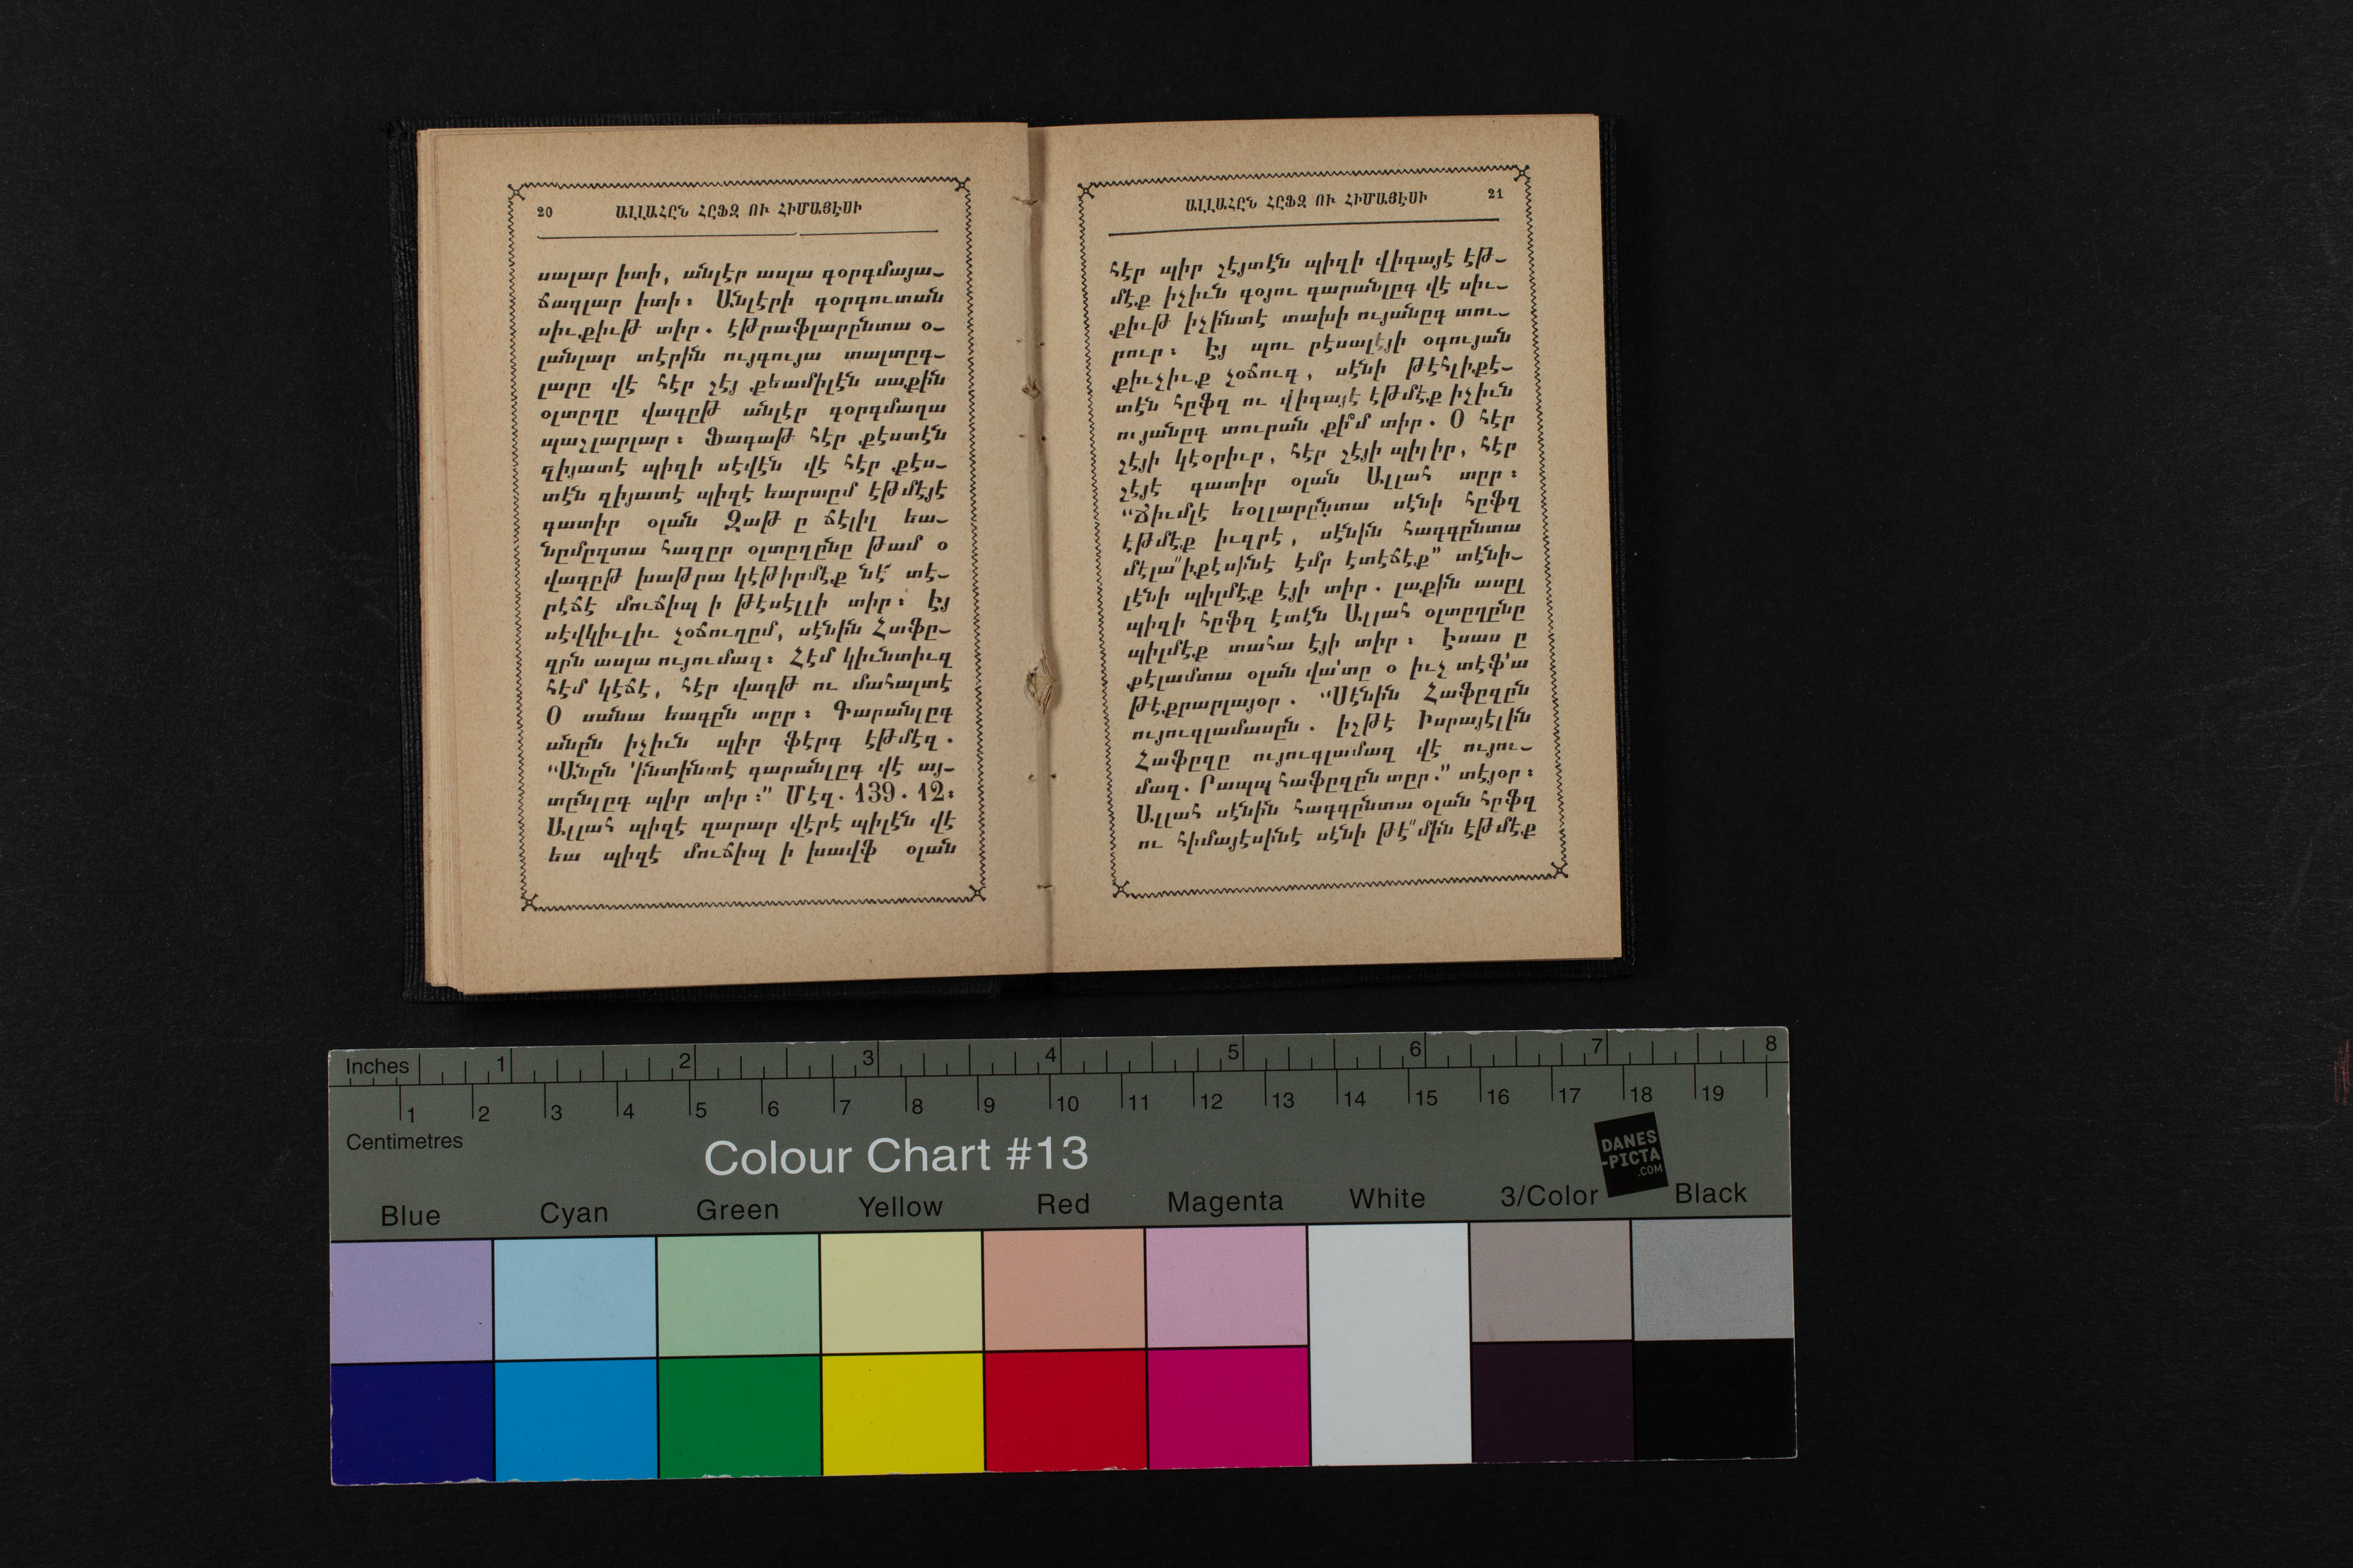 20 ԱԼԼԱՀԸՆ ՀԸՖԶ ՈՒ ՀԻՄԱՅԷՍԻ
սալար իտի, անլէր ասլա գօրգմայա–
ճագլար իտի։ Անլէրի գօրգուտան
սիւքիւթ տիր. էթրաֆլարընտա օ–
լանլար տէրին ույգույա տալտըգ–
լարը վէ հէր շէյ քեամիլէն սաքին
օլտըղը վագըթ անլէր գօրգմաղա
պաշլարլար։ Ֆագաթ հէր քէստէն
զիյատէ պիզի սէվէն վէ հէր քէս–
տէն զիյատէ պիզէ եարտըմ էթմէյէ
գատիր օլան Զաթ ը ճէլիլ եա–
նըմըզտա հազըր օլտըղընը թամ օ
վագըթ խաթրա կէթիրմէք նէ՜ տէ–
րէճէ մուճիպ ի թէսէլլի տիր։ Էյ
սէվկիւլիւ չօճուղըմ, սէնին Հաֆը–
զըն ասլա ույումազ։ Հէմ կիւնտիւզ
հէմ կէճէ, հէր վագթ ու մահալտէ
Օ սանա եագըն տըր։ Գարանլըգ
անըն իչիւն պիր ֆէրգ էթմէզ.
“Անըն ՚ինտինտէ գարանլըգ վէ այ–
տընլըգ պիր տիր։” Մէզ. 139. 12։
Ալլահ պիզէ զարար վէրէ պիլէն վէ
եա պիզէ մուճիպ ի խավֆ օլան
ԱԼԼԱՀԸՆ ՀԸՖԶ ՈՒ ՀԻՄԱՅԷՍԻ 21
հէր պիր շէյտէն պիզի վիգայէ էթ–
մէք իչիւն գօյու գարանլըգ վէ սիւ–
քիւթ իչինտէ տախի ույանըգ տու–
րուր։ Էյ պու րէսալէյի օգույան
քիւչիւք չօճուգ, սէնի թէհլիքէ–
տէն հըֆզ ու վիգայէ էթմէք իչիւն
ույանըգ տուրան քի՞մ տիր. Օ հէր
շէյի կէօրիւր, հէր շէյի պիլիր, հէր
շէյէ գատիր օլան Ալլահ տըր։
“Ճիւմլէ եօլլարընտա սէնի հըֆզ
էթմէք իւզրէ, սէնին հագգընտա
մէլա՞իքէսինէ էմր էտէճէք” տէնի–
լէնի պիլմէք էյի տիր. լաքին ասըլ
պիզի հըֆզ էտէն Ալլահ օլտըղընը
պիլմէք տահա էյի տիր։ Էսաս ը
քէլամտա օլան վա՚տը օ իւչ տէֆ՚ա
թէքրարլայօր. “Սէնին Հաֆըզըն
ույուգլամասըն. իշթէ Իսրայէլին
Հաֆըզը ույուգլամազ վէ ույու–
մազ. Րապպ հաֆըզըն տըր.” տէյօր։
Ալլահ սէնին հագգընտա օլան հըֆզ
ու հիմայէսինէ սէնի թէ՞մին էթմէք
Inches 1 2 3 4 5 6 7 8
1 2 3 4 5 6 7 8 9 10 11 12 13 14 15 16 17 18 19
Centimetres
Colour Chart #13
DANES
-PICTA
.COM
Blue Cyan Green Yellow Red Magenta White 3/Color Black